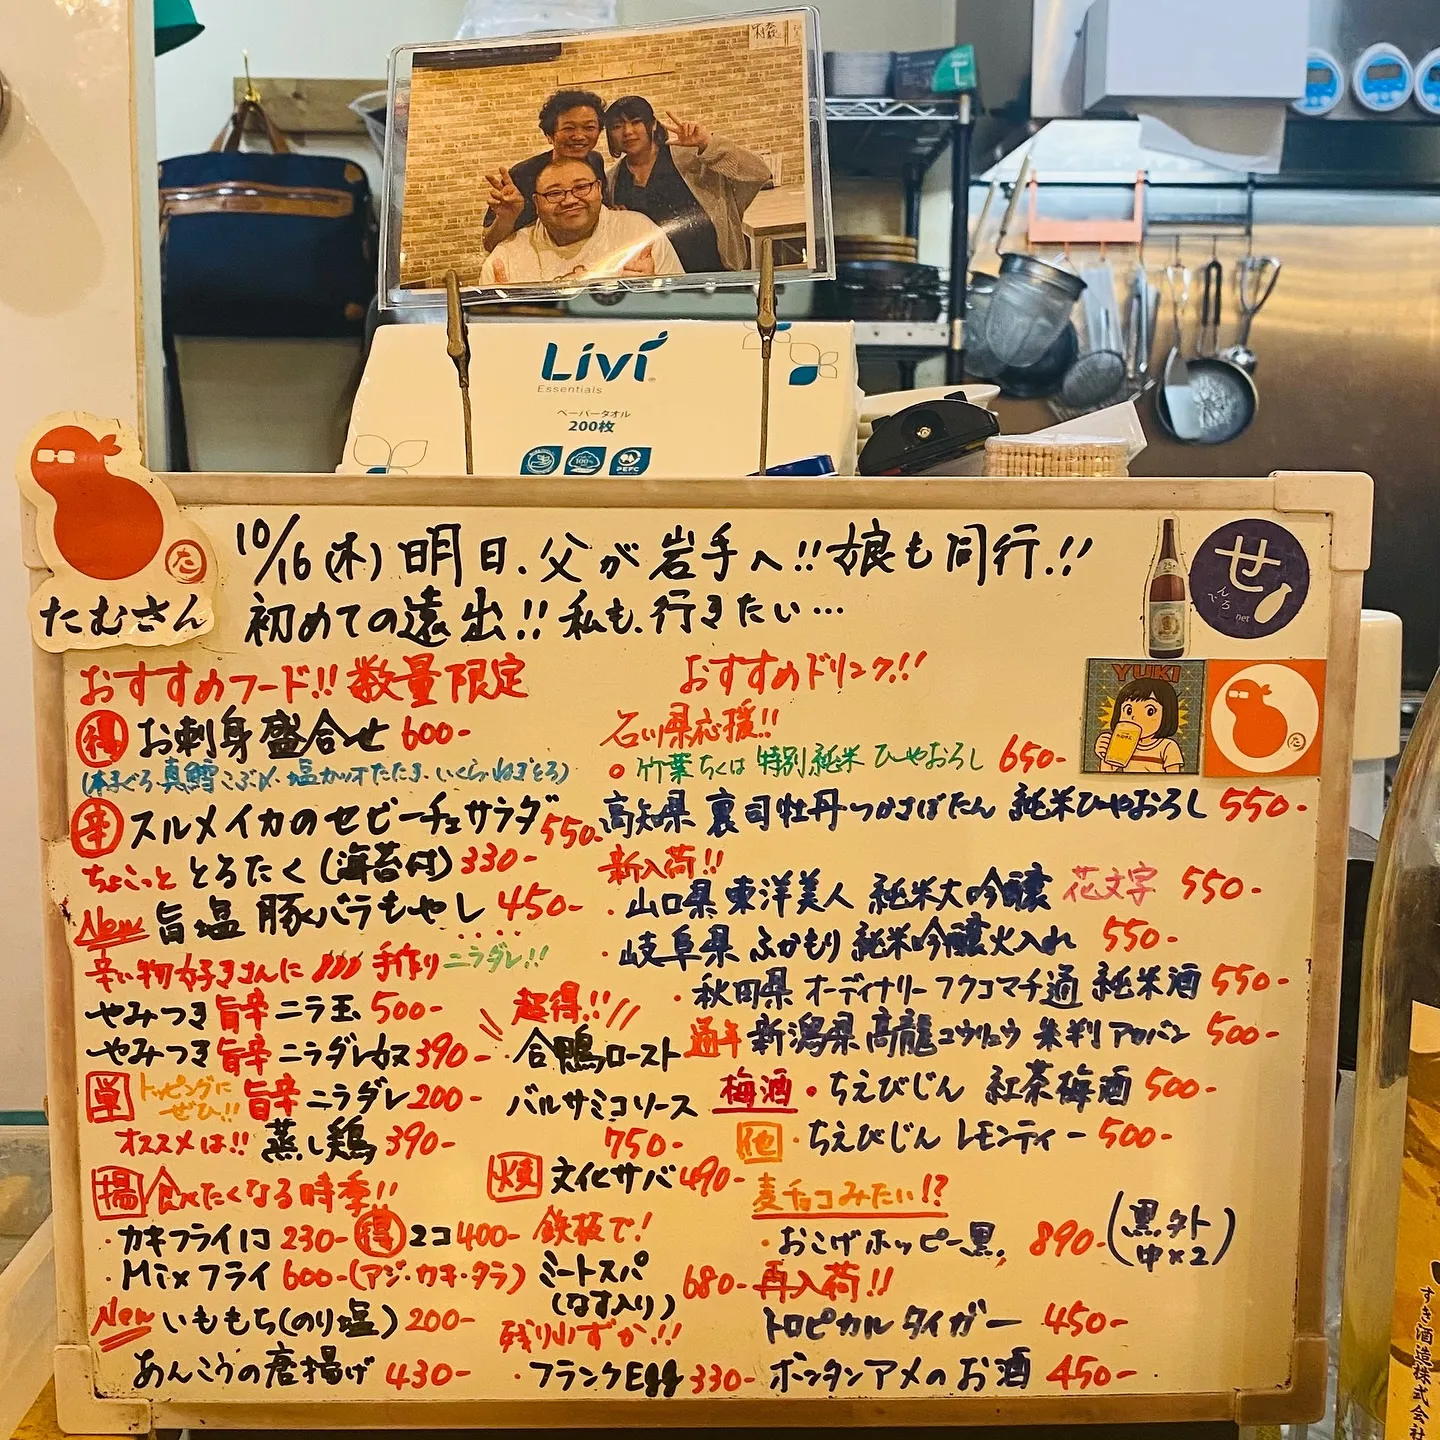 Livi
Essentials
ペーパータオル
200枚
100%
PEFC
たむさん
10/16(木) 明日、父が岩手へ!!娘も同行!!
初めての遠出!!私も、行きたい…
せ
んべろ
net
YUKI
おすすめフード!!数量限定
得 お刺身盛合せ 600-
(本まぐろ、真鱈こぶ〆、塩カツオたたき、いくら、ねぎとろ)
辛 スルメイカのセビーチェサラダ 550-
ちょこっと とろたく(海苔付) 330-
New 旨塩 豚バラもやし 450-
辛い物好きさんに 手作りニラダレ!!
やみつき旨辛ニラ玉 500-
やみつき旨辛ニラダレ奴 390-
単 トッピングにぜひ!! 旨辛ニラダレ 200-
オススメは!! 蒸し鶏 390-
揚 食べたくなる時季!!
・カキフライ1コ 230- 得 2コ 400-
・Mixフライ 600-(アジ・カキ・タラ)
New いももち(のり塩) 200-
あんこうの唐揚げ 430-
超得!!
合鴨ロースト
バルサミコソース
750-
焼 文化サバ 490-
鉄板で!
ミートスパ
(なす入り) 680-
残りわずか!!
・フランクEgg 330-
おすすめドリンク!!
石川県応援!!
○ 竹葉 ちくは 特別純米 ひやおろし 650-
高知県 裏司牡丹 つかさぼたん 純米ひやおろし 550-
新入荷!!
・山口県 東洋美人 純米大吟醸 花文字 550-
・岐阜県 ふかもり 純米吟醸火入れ 550-
・秋田県 オーディナリーフクコマチ 純米酒 550-
通年 新潟県 高龍 コウリュウ 朱判 アカバン 500-
梅酒 ・ちえびじん 紅茶梅酒 500-
他 ・ちえびじん レモンティー 500-
麦チョコみたい!?
・おこげホッピー黒 890-(黒,外 中×2)
再入荷!!
トロピカルタイガー 450-
ボンタンアメのお酒 450-
すき酒造株式会社